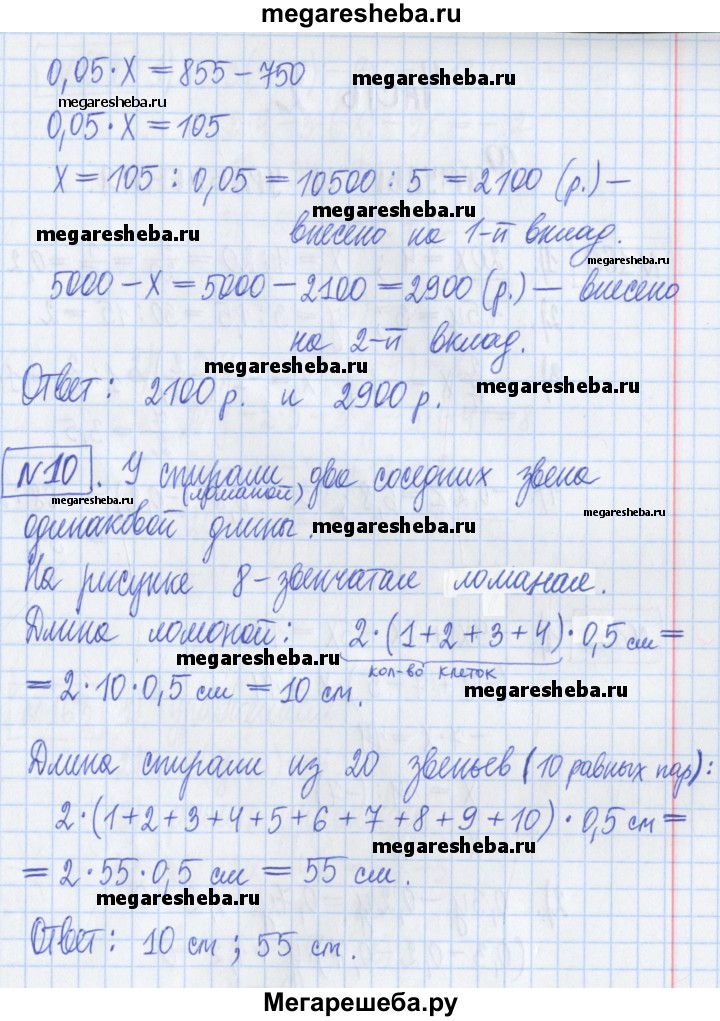 megaresheba.ru
0,05·X = 855 – 750
megaresheba.ru
megaresheba.ru
0,05·X = 105
X = 105 : 0,05 = 10500 : 5 = 2100 (р.) –
megaresheba.ru
megaresheba.ru
внесено на 1-й вклад.
megaresheba.ru
5000 – X = 5000 – 2100 = 2900 (р.) – внесено
на 2-й вклад.
megaresheba.ru
megaresheba.ru
Ответ: 2100 р. и 2900 р.
№10. У спирали (ломаной) два соседних звена
megaresheba.ru
megaresheba.ru
одинаковой длины.
megaresheba.ru
На рисунке 8-звенчатая ломаная.
Длина ломоной: 2·(1+2+3+4)·0,5 см =
megaresheba.ru
кол-во клеток
= 2·10·0,5 см = 10 см.
megaresheba.ru
Длина спирали из 20 звеньев (10 равных пар):
2·(1+2+3+4+5+6+7+8+9+10)·0,5 см =
megaresheba.ru
= 2·55·0,5 см = 55 см.
megaresheba.ru
Ответ: 10 см; 55 см.
megaresheba.ru
Мегарешеба.ру